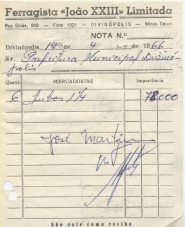 Ferragista «João XXIII» Limitada
Rua Goiás, 668 - Fone 1021 - DIVINÓPOLIS - Minas Gerais
NOTA N.º
Divinópolis, 18 de 4 de 1966
Sr. Prefeitura Municipal Divinó-
polis
QUANT. MERCADORIAS Importância
6 tubos 1¼ 78.000
José Martins
Não vale como recibo